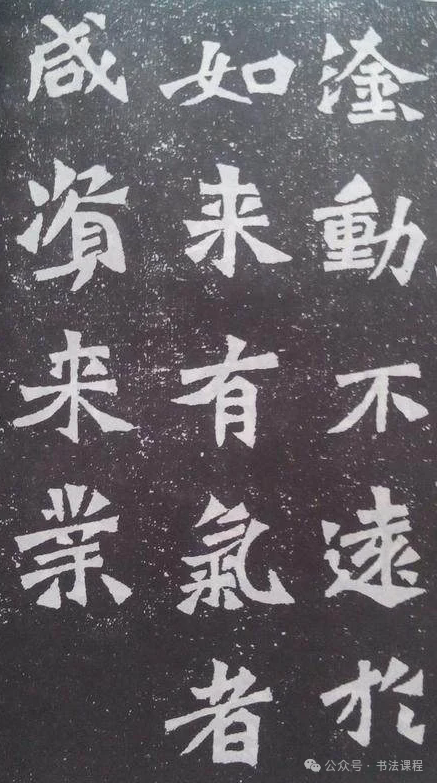 塗動不遠於
如来有氣者
咸資来業
公众号 · 书法课程